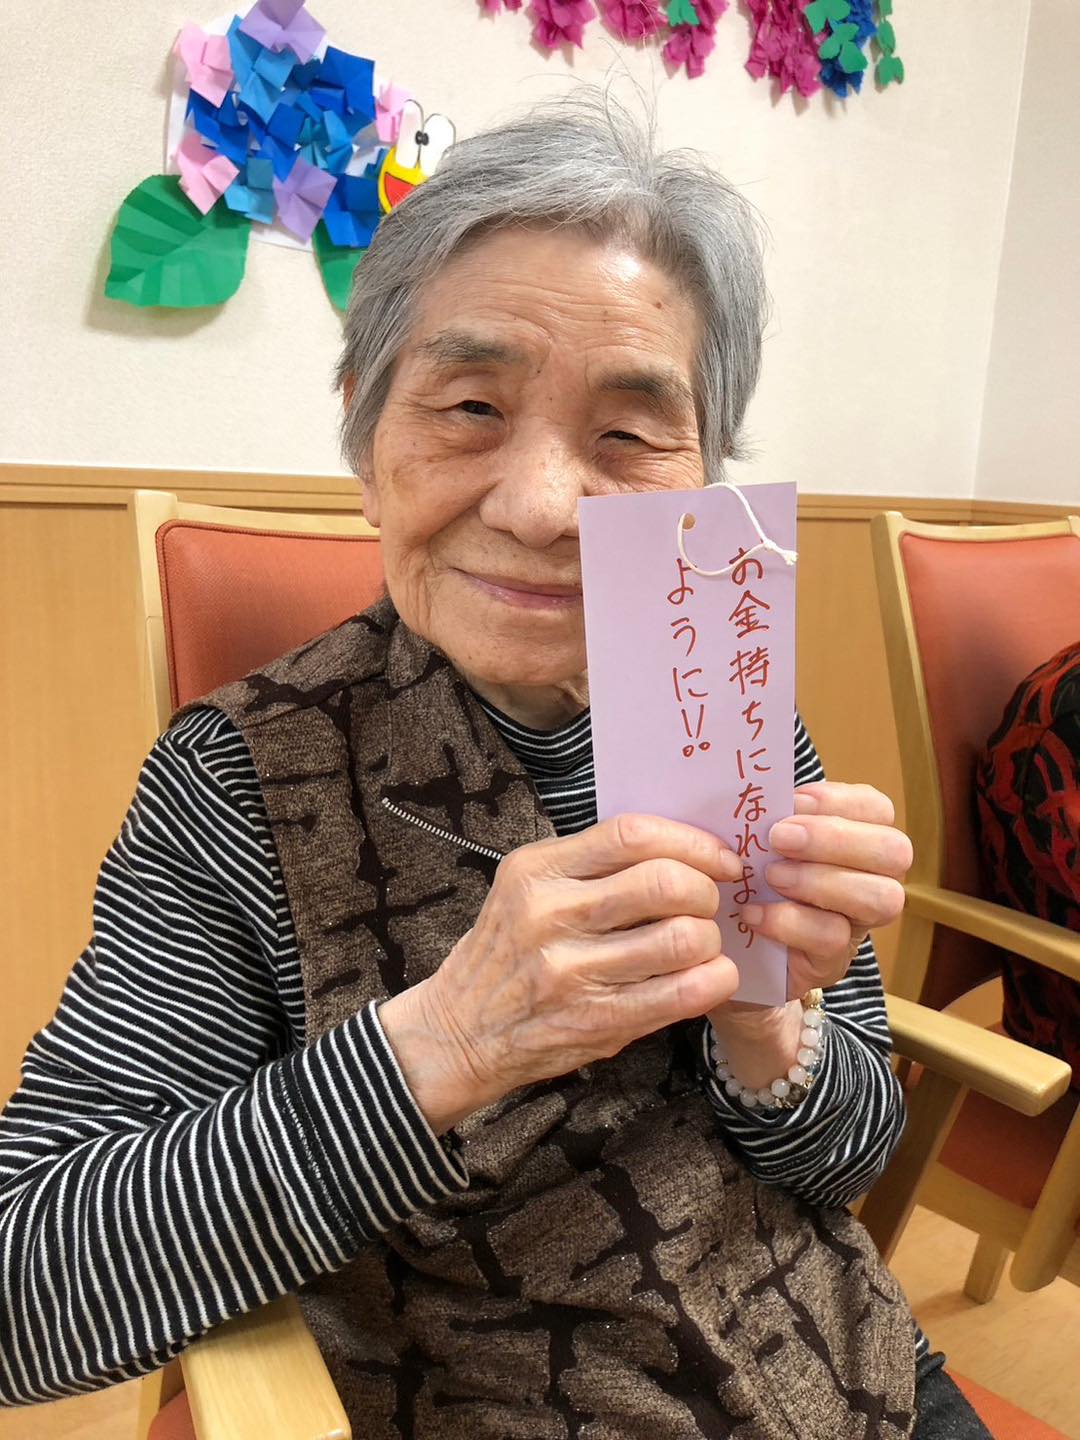 お金持ちになれます
ように!!